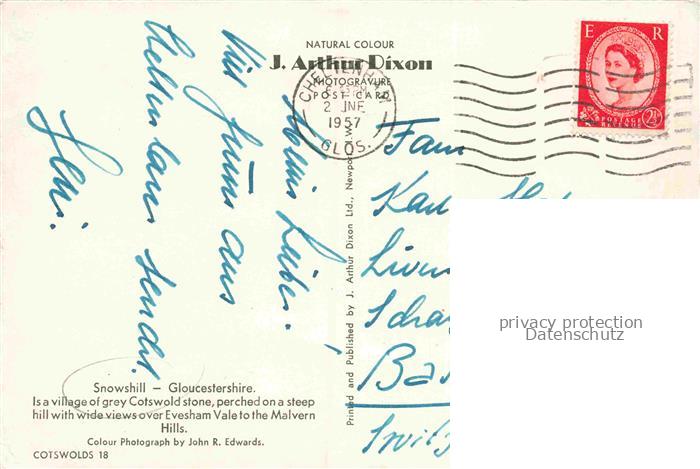 NATURAL COLOUR
J. Arthur Dixon
PHOTOGRAVURE
POST CARD
CHELTENHAM
2 JNE
1957
GLOS.
E R
POSTAGE
REVENUE
2½
Meine Lieben!
Viel Grüsse aus
Cheltenham sendet
Heiri.
Fam
Kar
Liver
Ba
Printed and Published by J. Arthur Dixon Ltd., Newport, I.W.
privacy protection
Datenschutz
Snowshill — Gloucestershire.
Is a village of grey Cotswold stone, perched on a steep
hill with wide views over Evesham Vale to the Malvern
Hills.
Colour Photograph by John R. Edwards.
COTSWOLDS 18